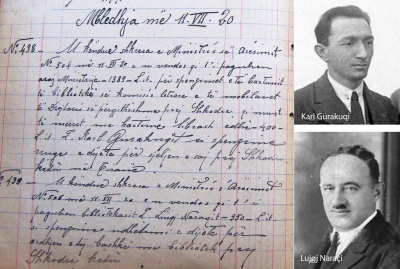 Mbledhja më 11.VII.20
Nr. 438 - U këndue shkresa e Ministris së Arsimit
Nr. 504 më 11 VII 20 e u vendos që t'i paguhen
asaj Ministrije - 1389 - L.it. për shpenzimet e të bartunit
të bibliotekës së komisis letrare e të mobilievet
të
prej Shkodre, si mund
të merret me hartue librash edhe 400 -
L.it. Z. Karl Gurakuqit si shpenzime
rruge e dijeta për sjelljen e saj prej Shkodre
këtu në Tiranë.
Nr. 439 - U këndue shkresa e Ministris s'Arsimit
Nr. 506 më 11 VII 20 e u vendos që t'i
paguhen bibliotekarit Z. Luigj Naraçit - 350 - L.it.
si shpenzime udhëtimi e dijeta për
ardhjen e tij bashkë me bibliotekë prej
Shkodre këtu
Karl Gurakuqi
Lujgj Naraçi